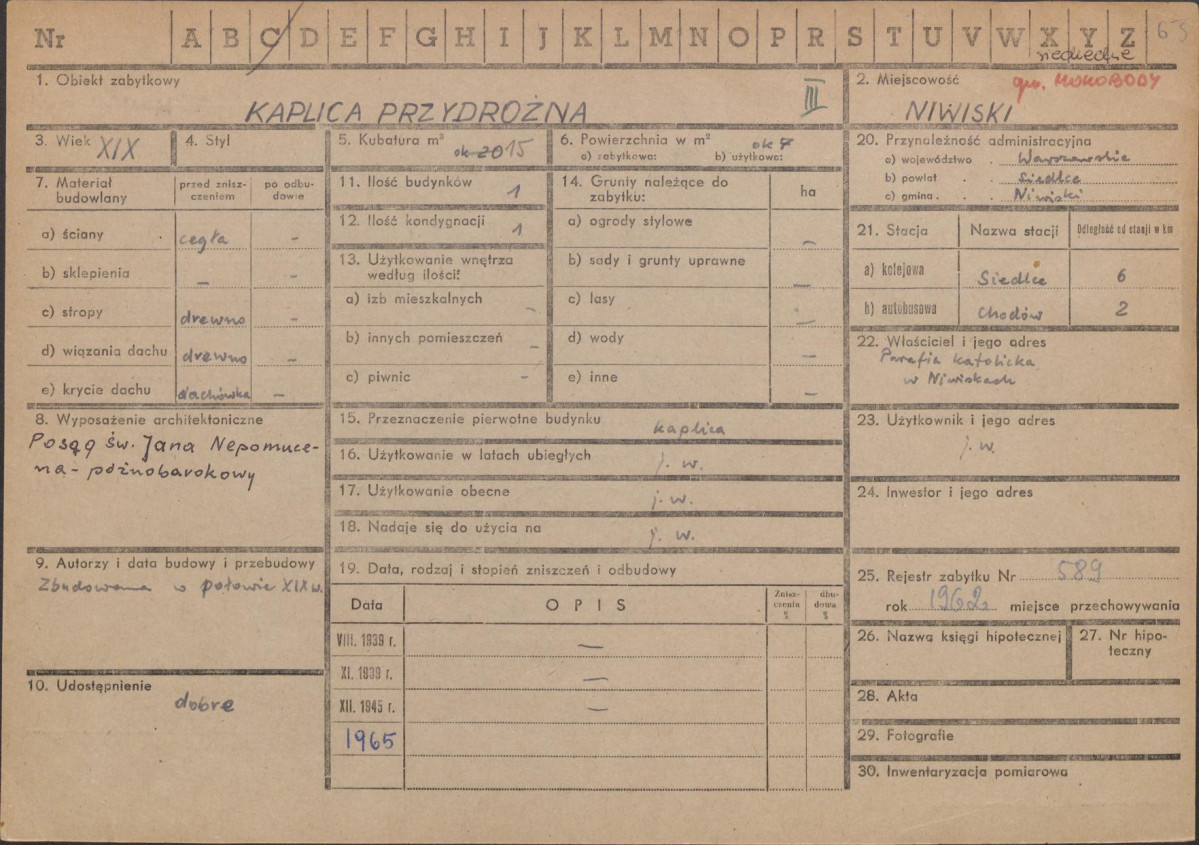 Nr A B C D E F G H I J K L M N O P R S T U V W X Y Z 65
siedleckie
1. Obiekt zabytkowy
KAPLICA PRZYDROŻNA
III
2. Miejscowość
gm. MOKOBODY
NIWISKI
3. Wiek XIX
4. Styl
5. Kubatura m³
ok 20 15
6. Powierzchnia w m²
ok 7
a) zabytkowa: b) użytkowa:
7. Materiał budowlany
przed zniszczeniem
po odbudowie
a) ściany cegła -
b) sklepienia - -
c) stropy drewno -
d) wiązania dachu drewno -
e) krycie dachu dachówka -
8. Wyposażenie architektoniczne
Posąg św. Jana Nepomuce-
na - późnobarokowy
9. Autorzy i data budowy i przebudowy
Zbudowana w połowie XIX w.
10. Udostępnienie
dobre
11. Ilość budynków 1
12. Ilość kondygnacji 1
13. Użytkowanie wnętrza
według ilości:
a) izb mieszkalnych -
b) innych pomieszczeń -
c) piwnic -
14. Grunty należące do
zabytku:
ha
a) ogrody stylowe -
b) sady i grunty uprawne -
c) lasy -
d) wody -
e) inne -
15. Przeznaczenie pierwotne budynku kaplica
16. Użytkowanie w latach ubiegłych j. w.
17. Użytkowanie obecne j. w.
18. Nadaje się do użycia na j. w.
19. Data, rodzaj i stopień zniszczeń i odbudowy
Data OPIS Zniszczenia % dbudowa %
VIII. 1939 r. -
XI. 1939 r. -
XII. 1945 r. -
1965
20. Przynależność administracyjna
a) województwo . Warszawskie
b) powiat . . Siedlce
c) gmina . . Niwiski
21. Stacja Nazwa stacji Odległość od stacji w km
a) kolejowa Siedlce 6
h) autobusowa Chodów 2
22. Właściciel i jego adres
Parafia katolicka
w Niwiskach
23. Użytkownik i jego adres
j. w.
24. Inwestor i jego adres
25. Rejestr zabytku Nr 589
rok 1962 miejsce przechowywania
26. Nazwa księgi hipotecznej
27. Nr hipoteczny
28. Akta
29. Fotografie
30. Inwentaryzacja pomiarowa